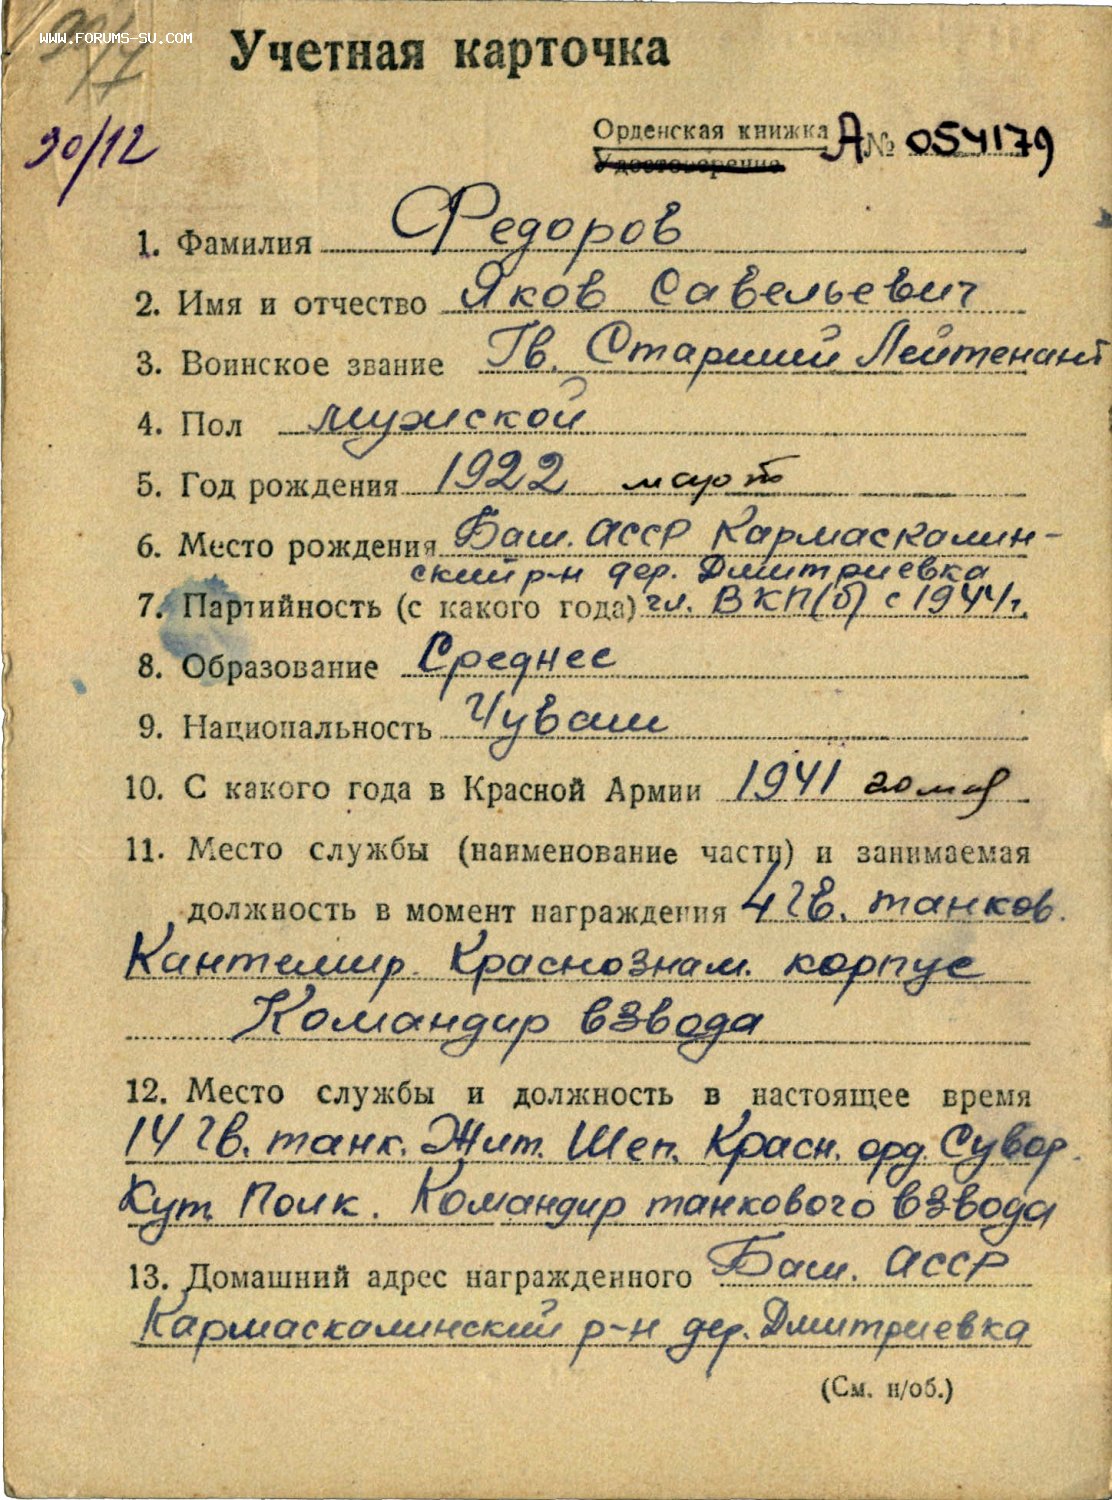 WWW.FORUMS-SU.COM
Учетная карточка
30/12
Орденская книжка А № 054179
Удостоверение
1. Фамилия Федоров
2. Имя и отчество Яков Савельевич
3. Воинское звание Гв. Старший Лейтенант
4. Пол мужской
5. Год рождения 1922 март
6. Место рождения Баш. АССР Кармаскалин-
ский р-н дер. Дмитриевка
7. Партийность (с какого года) чл. ВКП(б) с 1944 г.
8. Образование Среднее
9. Национальность Чуваш
10. С какого года в Красной Армии 1941
11. Место службы (наименование части) и занимаемая
должность в момент награждения 4 гв. танков.
Кантемир. Краснознам. корпус
Командир взвода
12. Место службы и должность в настоящее время
14 гв. танк. Жит. Шеп. Красн. орд. Сувор.
Кут. Полк. Командир танкового взвода
13. Домашний адрес награжденного Баш. АССР
Кармаскалинский р-н дер. Дмитриевка
(См. н/об.)